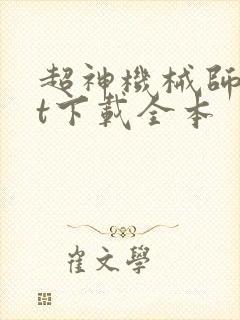 超神機械師
t下載全本
崔文學